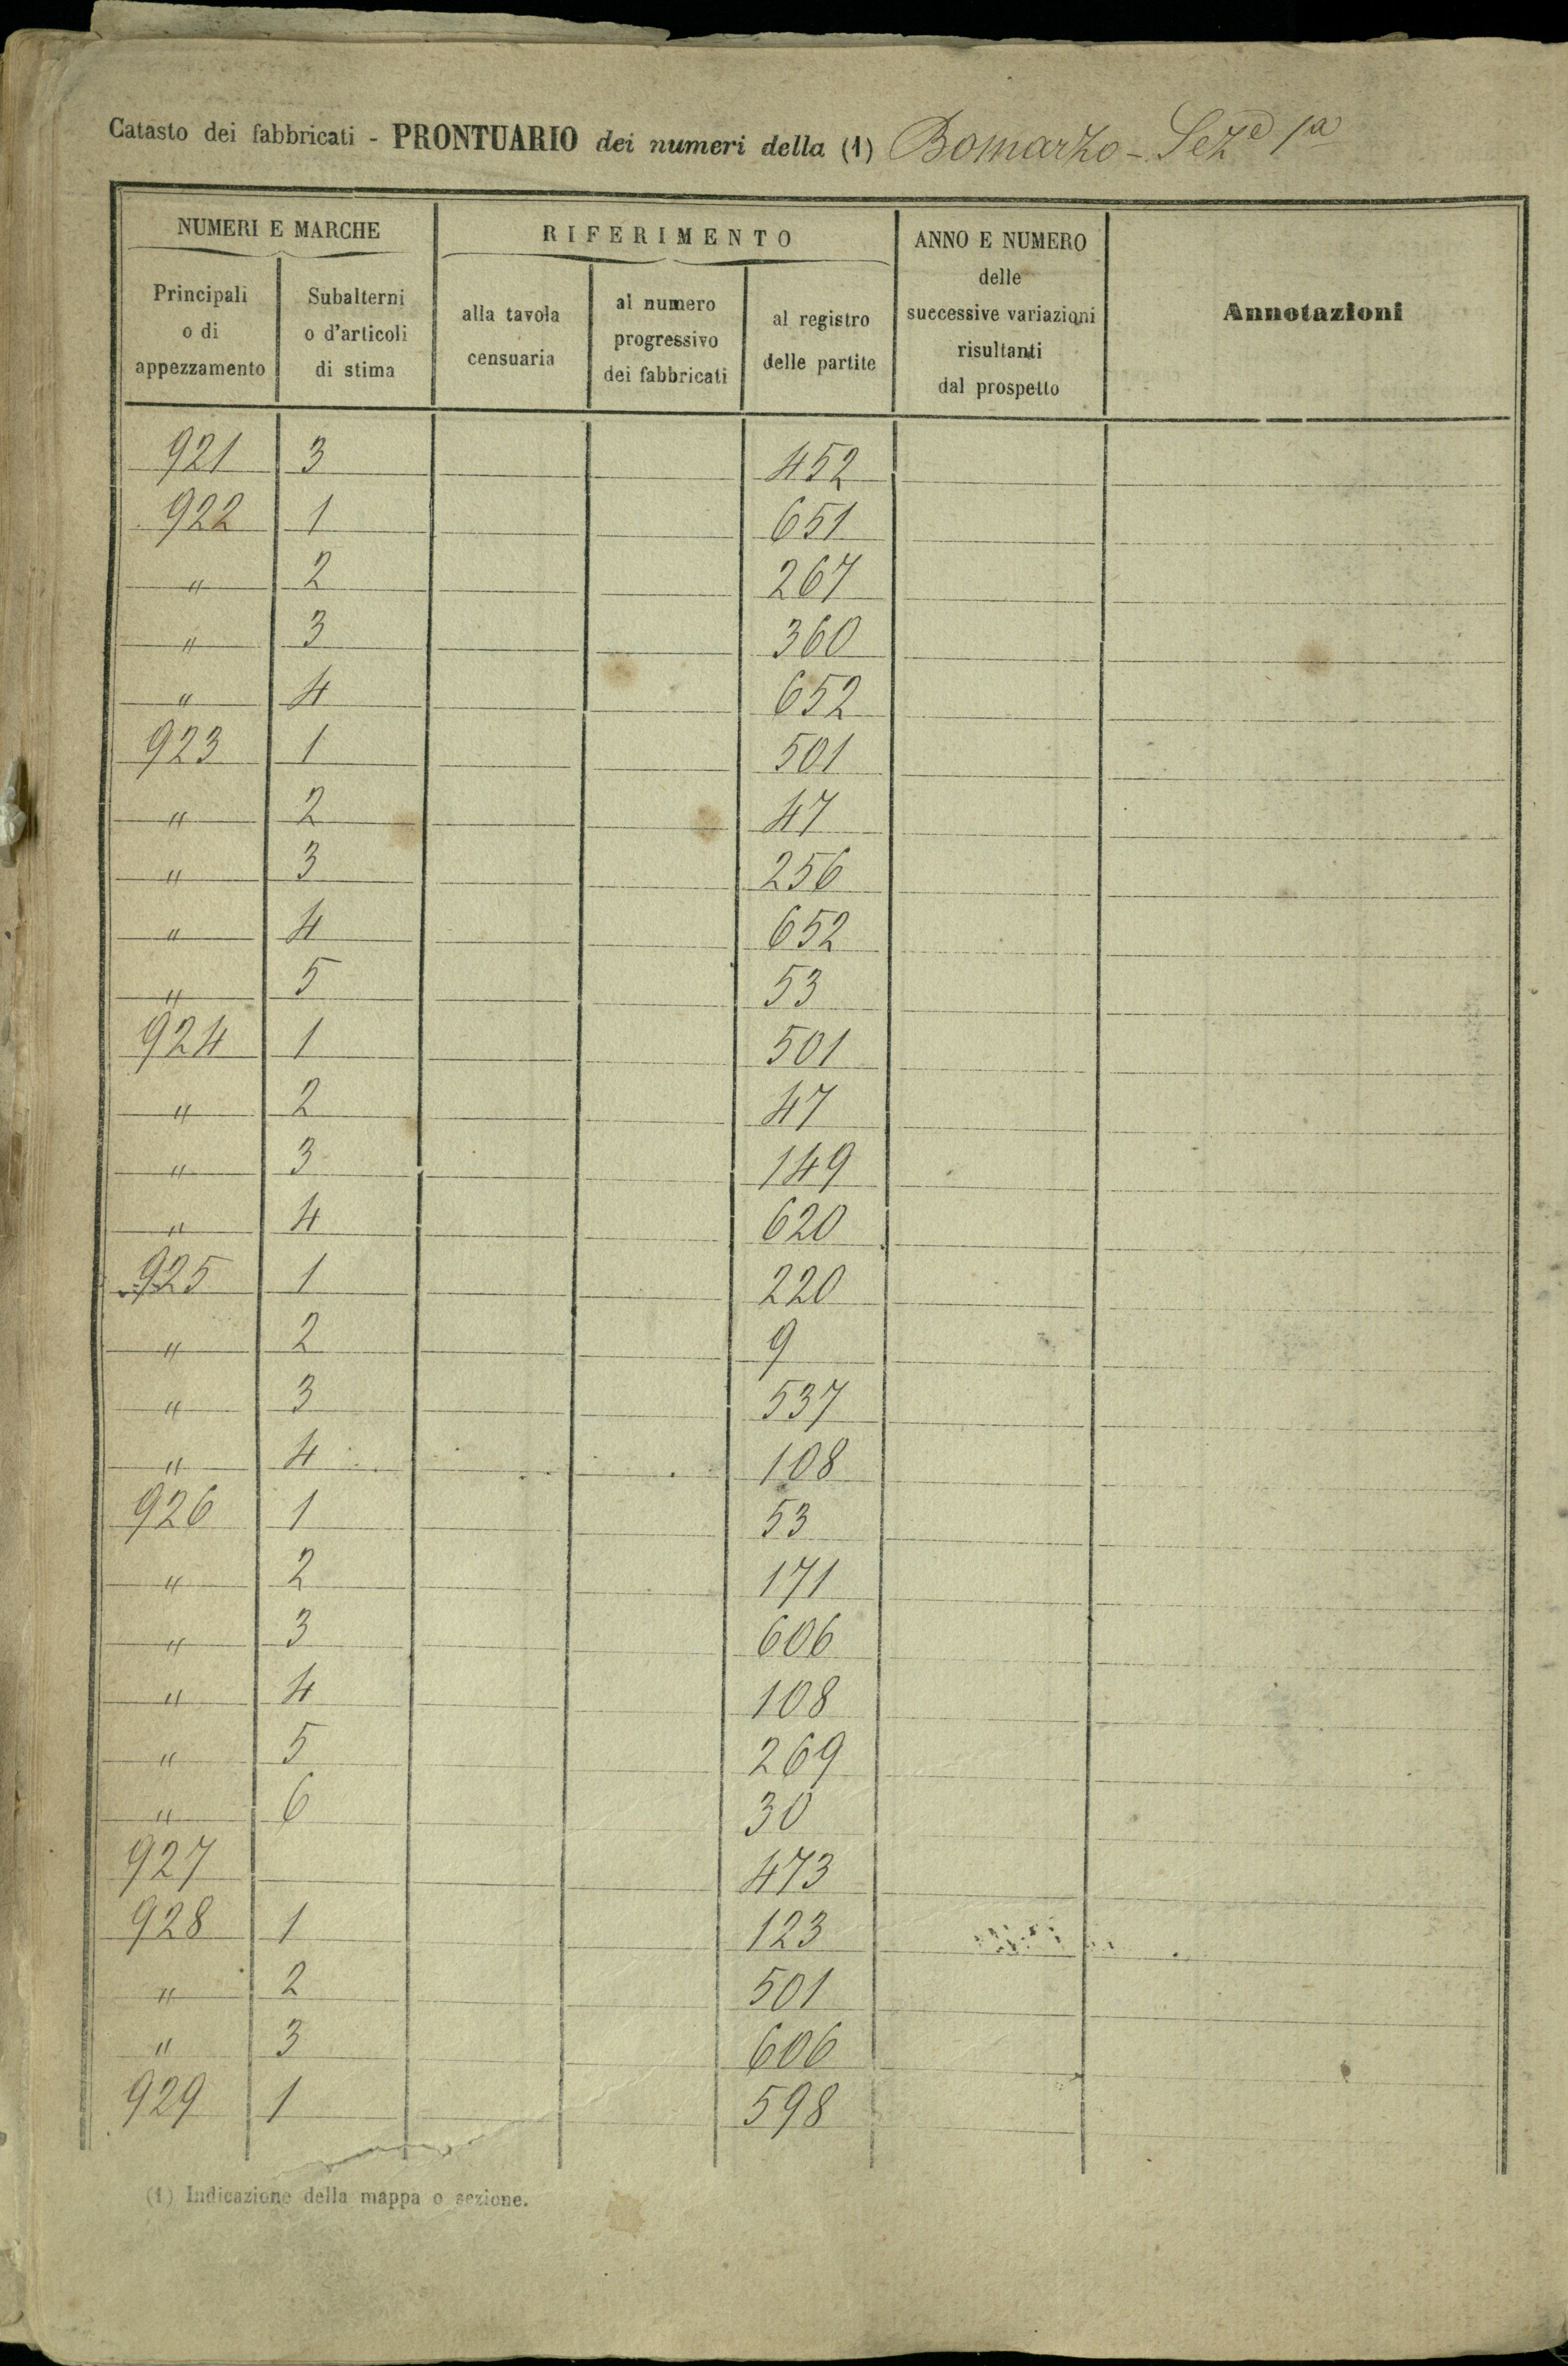 Catasto dei fabbricati - PRONTUARIO dei numeri della (1) Bomarzo - Seze 1a
NUMERI E MARCHE
RIFERIMENTO
ANNO E NUMERO
delle
successive variazioni
risultanti
dal prospetto
Annotazioni
Principali
o di
appezzamento
Subalterni
o d'articoli
di stima
alla tavola
censuaria
al numero
progressivo
dei fabbricati
al registro
delle partite
921 3 452
922 1 651
" 2 267
" 3 360
" 4 652
923 1 501
" 2 47
" 3 256
" 4 652
" 5 53
924 1 501
" 2 47
" 3 149
" 4 620
925 1 220
" 2 9
" 3 537
" 4 108
926 1 53
" 2 171
" 3 606
" 4 108
" 5 269
" 6 30
927 473
928 1 123
" 2 501
" 3 606
929 1 598
(1) Indicazione della mappa o sezione.